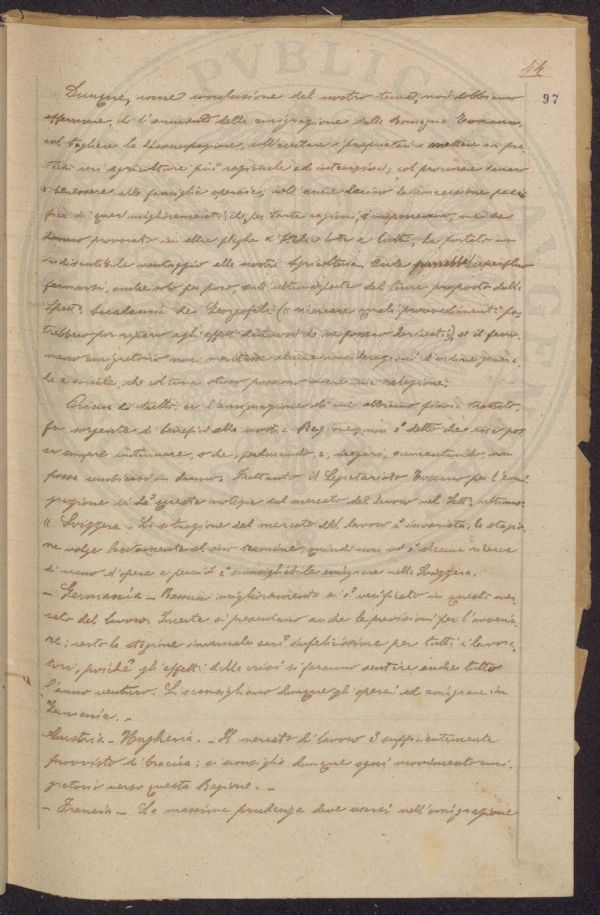 44
97
Dunque, come conclusione del nostro tema, noi dobbiamo
affermare, che l'aumento della emigrazione dalla Romagna Toscana,
col togliere la disoccupazione, coll'aiutare i proprietari a mettere in pra-
tica una agricoltura più razionale ed intensiva; col procurare denaro
e benessere alle famiglie operaie, coll'avere deciso la concessione paci-
fica di quei miglioramenti, che, per tante ragioni, s'imponevano, ma che
hanno provocato in altre plaghe d'Italia lotte e lutti, ha portato un
indiscutibile vantaggio alla nostra Agricoltura. Parrebbe superfluo
fermarsi, anche solo per poco, sull'ultima parte del tema proposto dalla
Spett. Accademia dei Georgofili (" ricercare quali provvedimenti po-
trebbero por riparo agli effetti dannosi che ne fossero derivati"), se il feno-
meno emigratorio non meritasse alcune considerazioni d'ordine genera-
le e sociale, che col tema stesso possono avere una relazione.
Prima di tutto, se l'emigrazione di cui abbiamo finora trattato,
fu sorgente di benefici alla nostra Regione, non è detto che essa pos-
sa sempre continuare, o che, perdurando, e, magari, aumentando, non
possa cambiarsi in danno. Frattanto il Segretariato Toscano per l'Emi-
grazione ci dà queste notizie sul mercato del lavoro nel Sett. ultimo:
" Svizzera - La situazione del mercato del lavoro è invariata, la stagio-
ne volge lentamente al suo termine, quindi non vi è alcuna ricerca
di mano d'opera e perciò è sconsigliabile emigrare nella Svizzera.
- Germania - Nessun miglioramento si è verificato in questo mer-
cato del lavoro. Incerte si presentano anche le previsioni per l'avveni-
re; certo la stagione invernale sarà infelicissima per tutti i lavora-
tori, poichè gli effetti della crisi si faranno sentire anche tutto
l'anno venturo. Si sconsigliano dunque gli operai ad emigrare in
Germania. -
Austria - Ungheria. - Il mercato di lavoro è sufficientemente
provvisto di braccia; si sconsiglia dunque ogni movimento emi-
gratorio verso questa Regione. -
- Francia - La massima prudenza deve usarsi nell'emigrazione